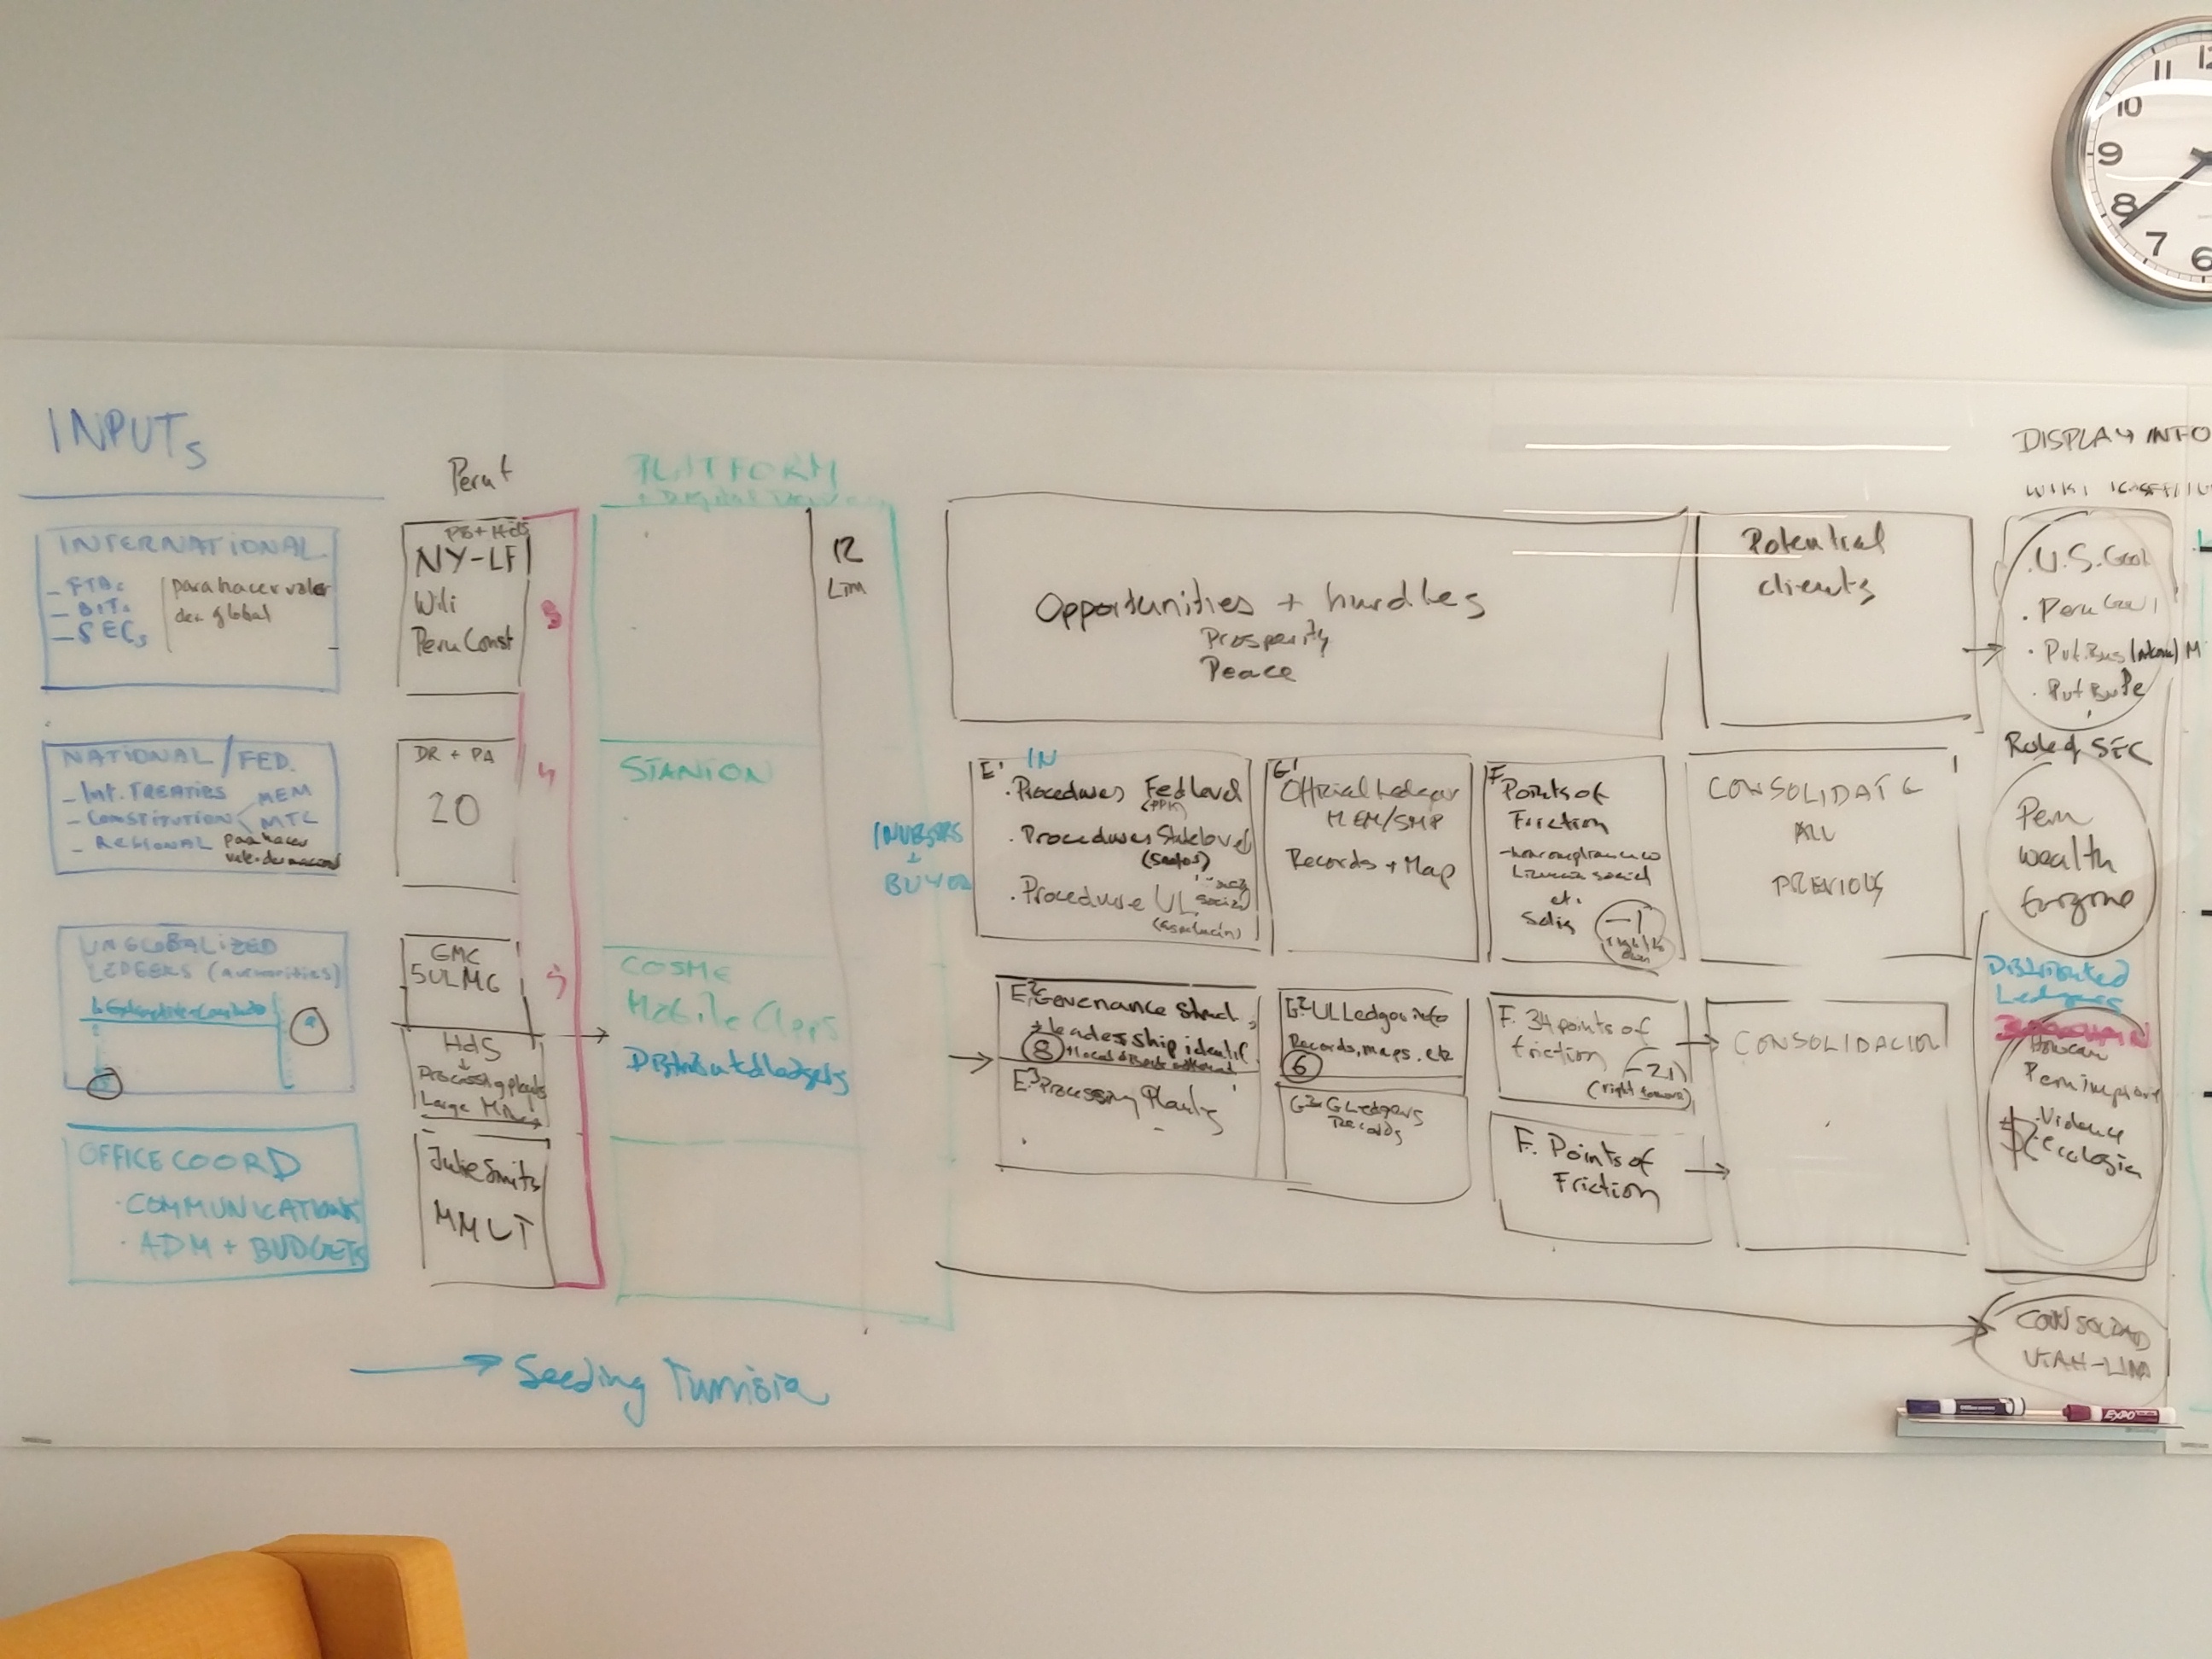 INPUTS
INTERNATIONAL
- FTAs
- BITs
- SECs
para hacer valer
der. global
NATIONAL/FED.
- Int. TREATIES
- CONSTITUTION
- REGIONAL
MEM
MTC
para hacer
UNGLOBALIZED
LEDGERS (authorities)
OFFICE COORD
· COMMUNICATIONS
· ADM + BUDGETS
Peru
PB + HdS
NY-LF
Wili
Peru Const
3
DR + PA
20
4
GMC
5ULMG
5
HdS
Processing plants
Large Mines
Julie Smits
MMLT
PLATFORM
STANION
COSME
Mobile Apps
Distributed ledgers
12
Lim
→ Seeding Tunisia
INVESORS
+
BUYOR
Opportunities + hurdles
Prosperity
Peace
Potential
clients
E1 IN
· Procedures Fed Level
· Procedures State level
· Procedure UL
G1
Official Ledger
MEM/SMP
Records + Map
F Points of
Friction
Licencia social
etc.
-1
CONSOLIDATE
ALL
PREVIOUS
E2 Governance Struct,
+ leadership identif
8
E3 Processing Plants
G2 UL Ledger info
Records, maps, etc
6
G2 G Ledgers
Records
F. 34 points of
friction
-21
F. Points of
Friction
CONSOLIDACION
DISPLAY INFO
· U.S. Gov
· Peru Gov
Role of SEC
Peru
wealth
Distributed
Ledgers
BLOCKCHAIN
How can
Peru improve
· Violence
· ecologia
CONSOLIDAD
UTAH-LIMA
12
11
10
9
8
7
6
EXPO